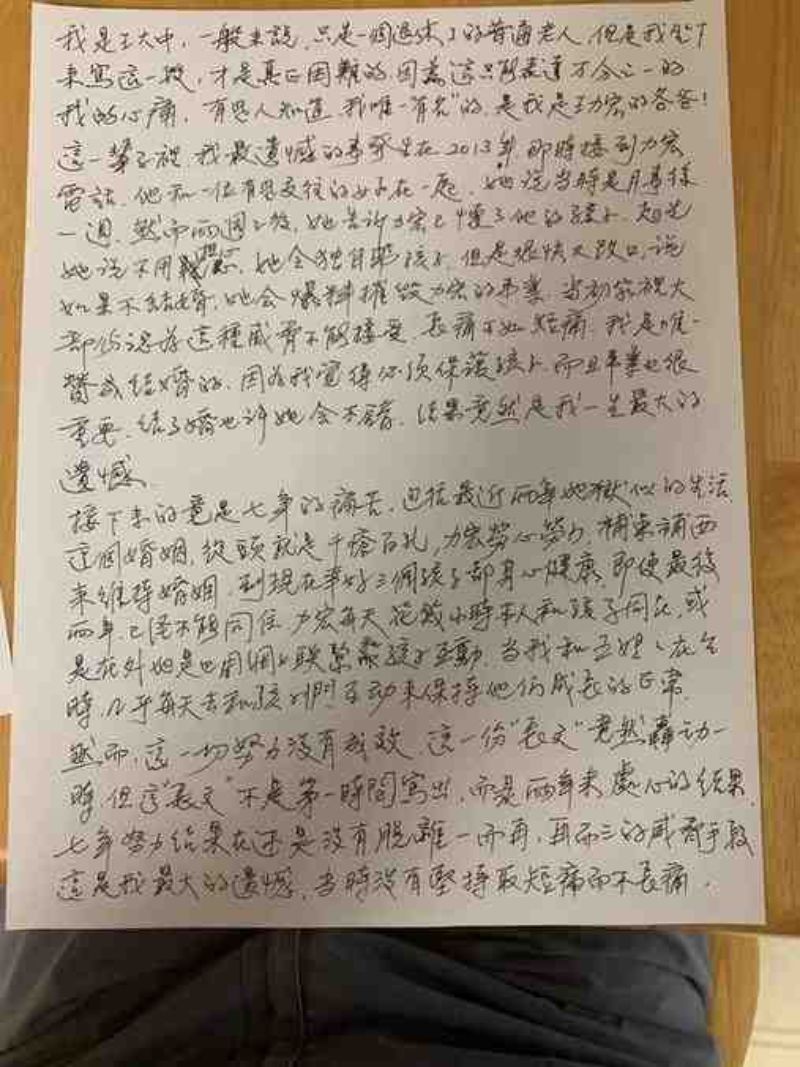 我是王大中，一般來說，只是一個退休了的普通老人，但是我坐下
來寫這一段，才是真正困難的，因為這只能表達万分之一的
我的心痛，有些人知道，我唯一"有名"的，是我是王力宏的爸爸！
這一輩子裡，我最遺憾的事發生在2013年，那時接到力宏
電話，他和一位有些交往的女子在一起，她說當時是月事後
一週，然而兩週之後，她告訴力宏已懷了他的孩子，起先
她說不用擔心，她会独自驅孩子，但是很快又改口，說
如果不結婚，她会爆料摧毀力宏的事業，当初家裡大
部份認為這種威脅不能接受，長痛不如短痛，我是唯一
贊成结婚的，因为我覺得必須保護孩子，而且事業也很
重要，結了婚也許她会不錯，结果竟然是我一生最大的
遺憾
接下来的竟是七年的痛苦，包括最近兩年地獄似的生活，
這個婚姻，從頭就是千瘡百孔，力宏勞心勞力，補東補西
來維持婚姻，到現在幸好三個孩子都身心健康，即使最後
兩年，已经不能同住，力宏每天花幾小時本人和孩子同在，或
是在外地是也用網上联繫跟孩子互動，当我和王媽媽在台
時，几乎每天去和孩子們互动来保持他们成長的正常
然而，這一切努力没有成效，這一份"長文"竟然轟动一
時，但这"長文"不是第一時間寫出，而是兩年来處心的结果
七年努力结果在还是没有脫離一而再，再而三的威脅手段
這是我最大的遺憾，当時没有堅持取短痛而不長痛．